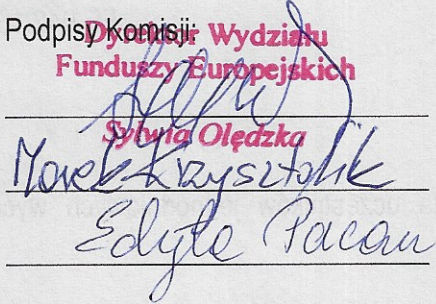 Podpisy Komisji:
Dyrektor Wydziału
Funduszy Europejskich
Sylwia Olędzka
Marek Krzysztofik
Edyta Pacan